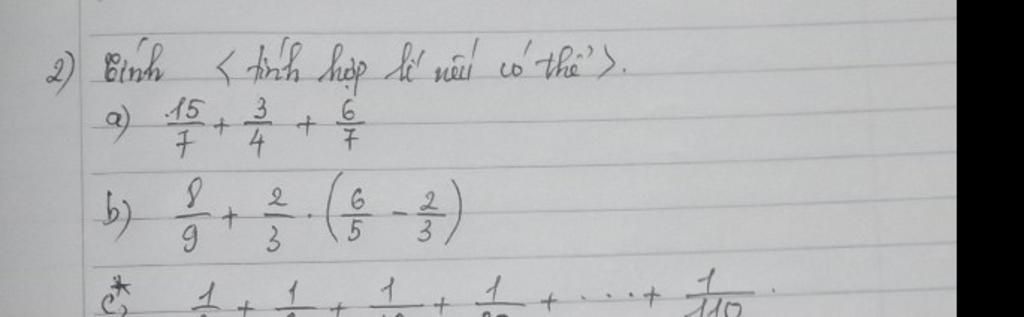 2) Tính < tính hợp lí nếu có thể >.
a) 15/7 + 3/4 + 6/7
b) 8/9 + 2/3 . (6/5 - 2/3)
c*) 1/ + 1/ + 1/ + 1/ + ... + 1/110 .